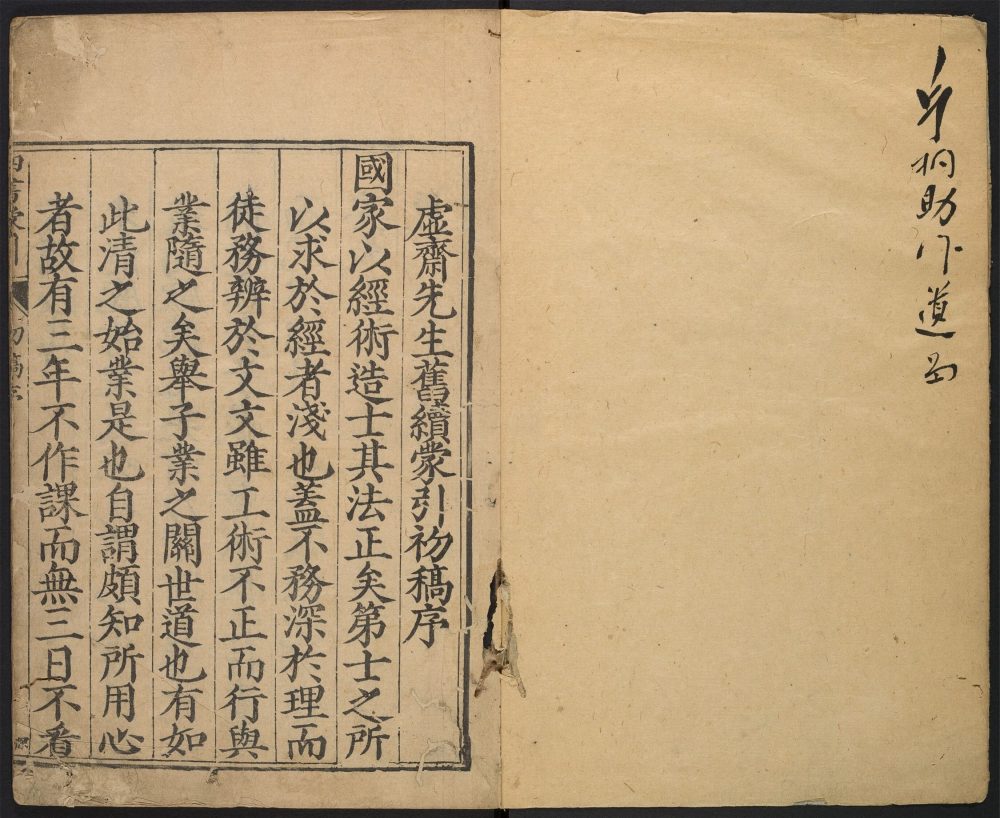 助作道
虛齋先生舊續蒙引初稿序
國家以經術造士其法正矣第士之所
以求於經者淺也蓋不務深於理而
徒務辨於文文雖工術不正而行與
業隨之矣舉子業之關世道也有如
此清之始業是也自謂頗知所用心
者故有三年不作課而無三日不看
四書蒙引
初稿序